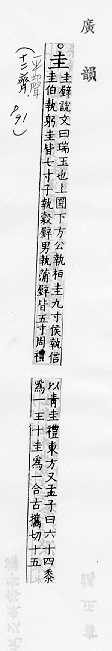 廣韻
圭
圭辭說文曰瑞玉也上圓下方公執桓圭九寸侯執信
圭伯執躬圭皆七寸子執穀辭男執蒲辭皆五寸周禮
以青圭禮東方又孟子曰六十四黍
爲一圭十圭爲一合古攜切十五
上平聲
(十二齊)
P.91